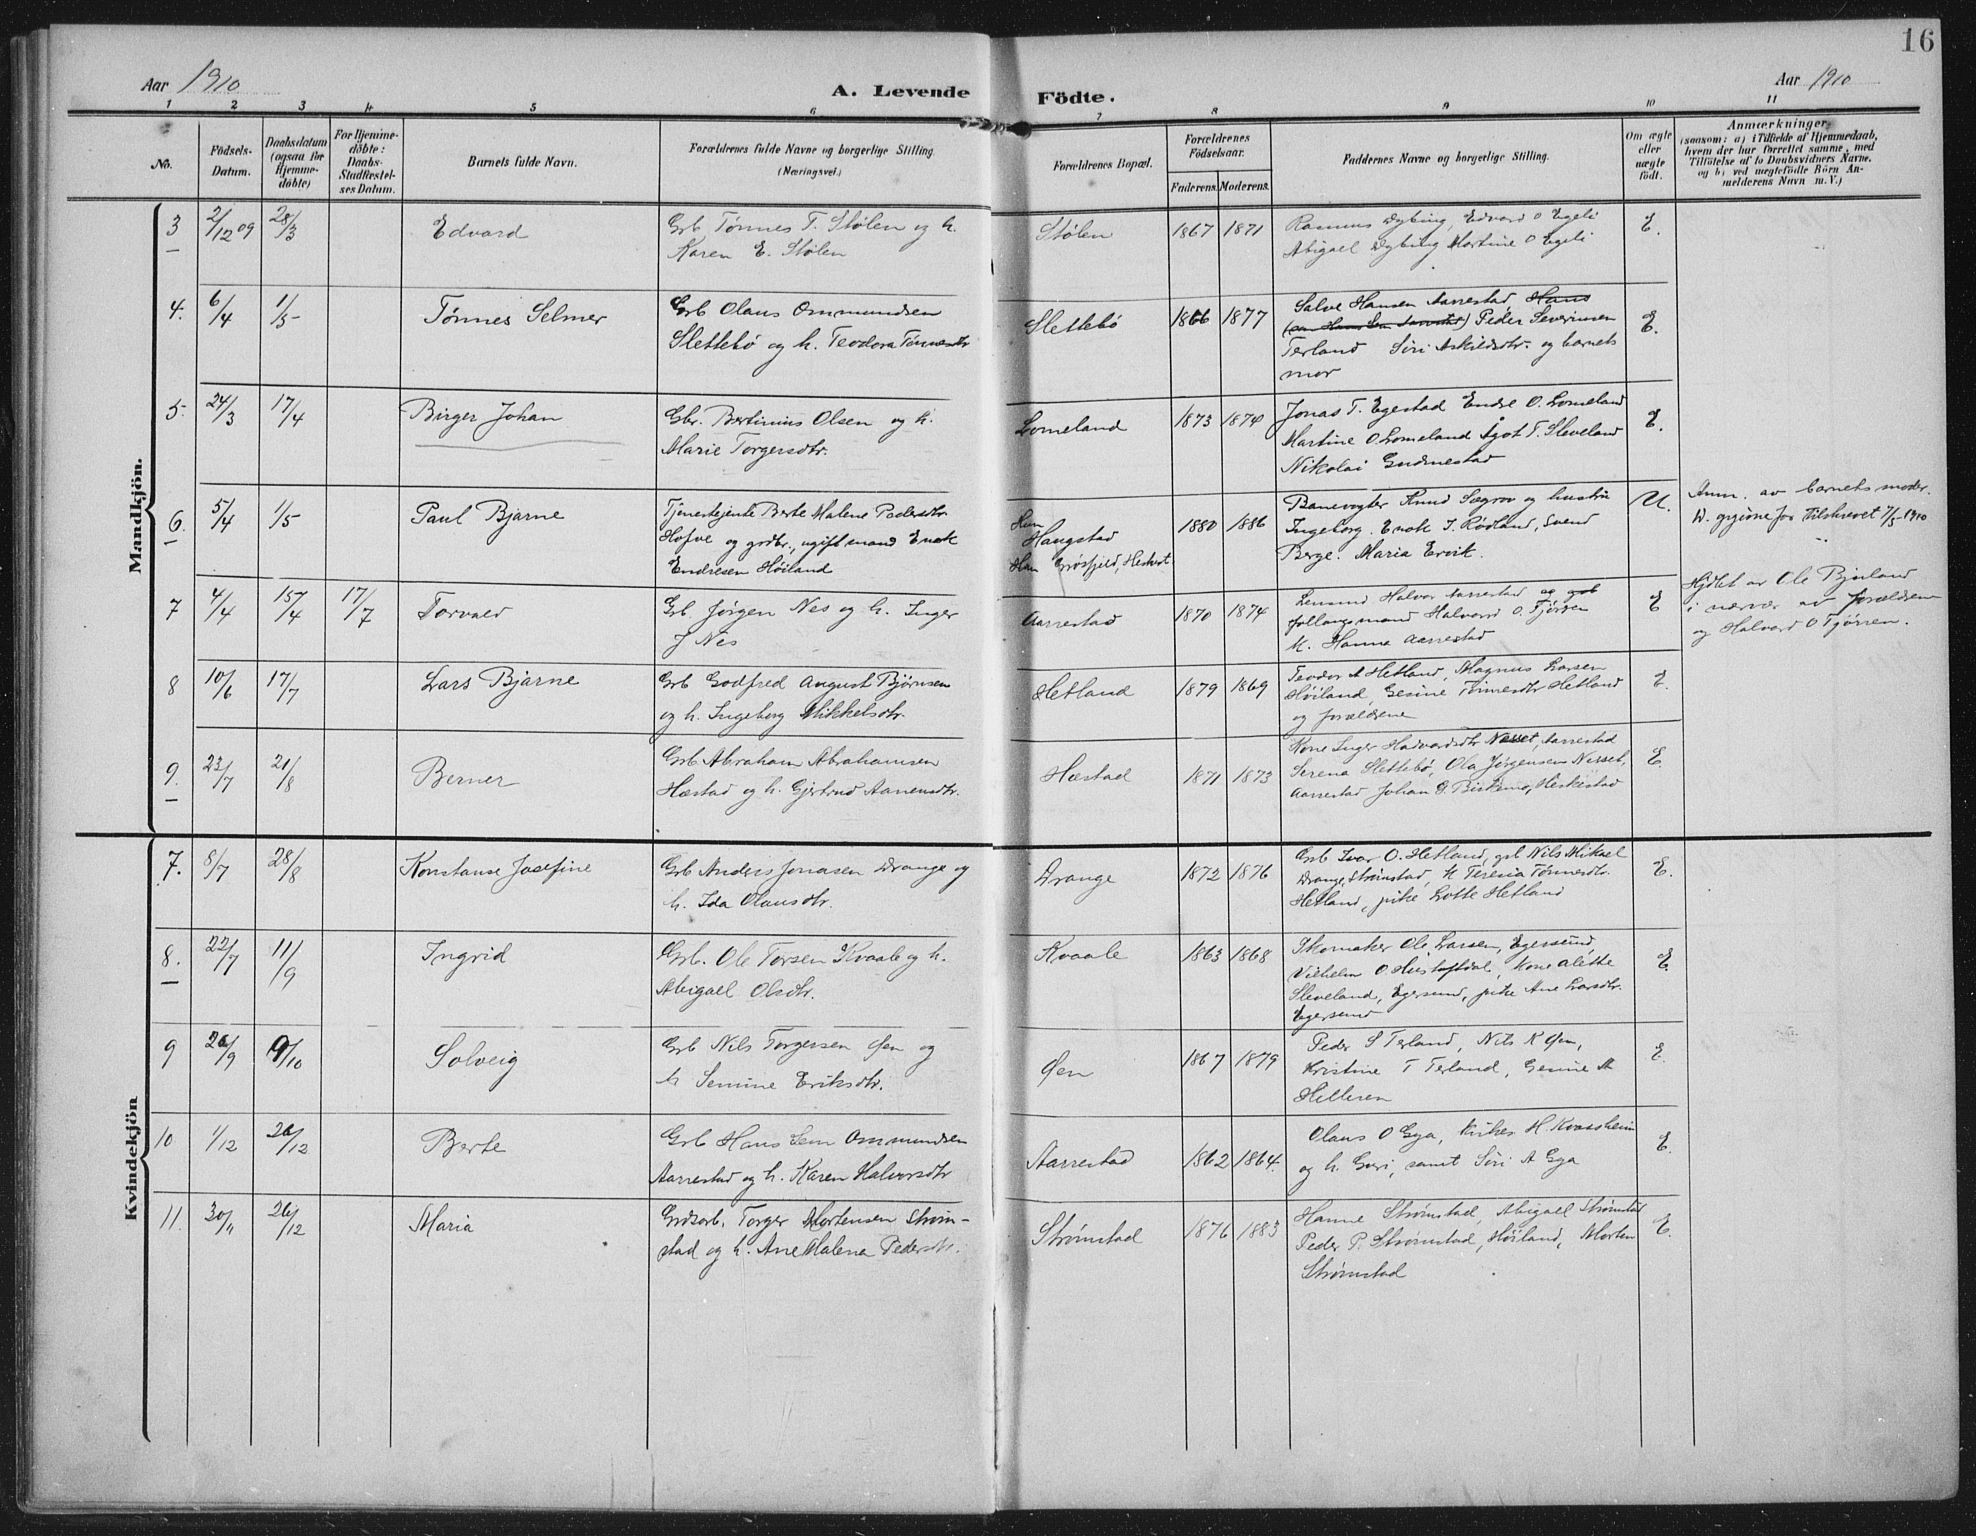 16
Aar 1910
A. Levende Födte.
Aar 1910
1 2 3 4 5 6 7 8 9 10 11
No.
Födsels-
Datum.
Daabsdatum
(ogsaa for
Hjemme-
döbte)
For Hjemme-
döbte:
Daabs-
Stadfæstel-
ses Datum.
Barnets fulde Navn.
Forældrenes fulde Navne og borgerlige Stilling.
(Næringsvei.)
Forældrenes Bopæl.
Forældrenes
Födselsaar.
Faderens. Moderens.
Faddernes Navne og borgerlige Stilling.
Om ægte
eller
uægte
födt.
Anmærkninger
(saasom: a) i Tilfælde af Hjemmedaab,
hvem der har forrettet samme, med
Tilföielse af to Daabsvidners Navne.
og b) ved uægtefödte Börn An-
melderens Navn m. V.)
Mandkjön.
3 2/12 09 28/3 Edvard
Grb Tønnes T. Stølen og h.
Karen E. Stølen
Stølen 1867 1871
Rasmus Dybing, Edvard O Egeli
Abigael Dybing Martine O Egeli
E.
4. 6/4 1/5 Tønnes Selmer
Grb Olaus Ommundsen
Slettebø og h. Teodora Tønnesdtr
Slettebø 1866 1877
Salve Hansen Aarrestad, Hans
Peder Severinsen
Terland Siri Askildsdtr. og barnets
mor
E.
5. 24/3 17/4 Birger Johan
Gbr. Bertinius Olsen og h.
Marie Torgersdtr.
Lomeland 1873 1874
Jonas T. Egestad Endre O. Lomeland
Martine O. Lomeland Ågot T. Sleveland
Nikolai Gudmestad
E.
6. 5/4 1/5 Paul Bjarne
Tjenestejente Berte Malene Pedersdtr
Hofve og grdbr., ugift mand Enok
Endresen Høiland
Hun
Haugstad
Han Grøsfjeld, Heskest.
1880 1886
Banevogter Knud Sægrov og hustru
Ingeborg. Enok I. Rødland, Svend
Berge. Maria Ervik.
U.
Anm. av barnets moder.
Tilskrevet 7/5-1910
7 4/4 15/4 17/7 Torvald
Grb Jørgen Nes og h. Inger
J Nes
Aarrestad 1870 1874
Lensmd Halvor Aarrestad og grb
Halvard O. Tjørren
K. Hanna Aarrestad
E
Hjdbt av Ole Bjuland
i nærvær av forældrene
og Halvard O Tjørren.
8 10/6 17/7 Lars Bjarne
Grb Godfred August Bjørnsen
og h. Ingeborg Mikkelsdtr.
Hetland 1879 1869
Teodor A Hetland, Magnus Larsen
Høiland, Gesine Tønnesdtr Hetland
og forældrene
E.
9. 23/7 21/8 Berner
Grb Abraham Abrahamsen
Hæstad og h. Gjertrud Aanensdtr.
Hæstad 1871 1873
Kone Inger Hadvardsdtr Nesset, Aarrestad
Serena Slettebø, Ola Jørgensen Nesset,
Aarrestad Johan G. Birkemo, Heskestad
E.
Kvindekjön
7. 8/7 28/8 Konstanse Josefine
Grb Anders Jonassen Drange og
h. Ida Olausdtr.
Drange 1872 1876
Grb Ivar O. Hetland, grb Nils Mikael
Drange, Strømstad, k Teresia Tønnesdtr.
Hetland, pike Lotte Hetland
E.
8. 22/7 11/9 Ingrid
Grb. Ole Torsen Kvaale og h.
Abigael Olsdtr.
Kvaale 1863 1868
Skomaker Ole Larsen, Egersund,
Vilhelm O. Hustoftdal, kone Alette
Sleveland, Egersund, pike Ane Larsdtr.
Egersund
E.
9 26/9 9/10 Solveig
Grb Nils Torgersen Øen og
h Semine Eriksdtr.
Øen 1867 1879
Peder S Terland, Nils K Øen,
Kristine T Terland, Gesine A
Helleren
E.
10 1/12 26/12 Berte
Grb Hans Sem Ommundsen
Aarrestad og h. Karen Halvorsdtr
Aarrestad 1862 1864.
Olaus O Gya, H. Kvassheim
og h. Guri, samt Siri A Gya
E.
11. 30/11 26/12 Maria
Grdsarb. Torger Mortensen Strøm-
stad og h. Ane Malena Pedersdtr.
Strømstad 1876 1883
Hanne Strømstad, Abigael Strømstad
Peder P. Strømstad, Høiland, Morten
Strømstad
E.